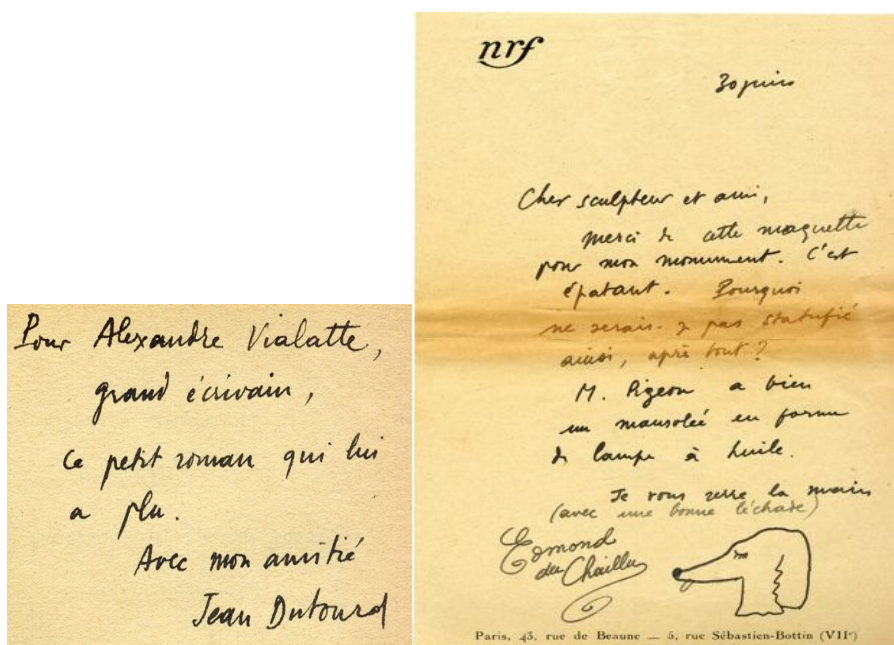 Pour Alexandre Vialatte,
grand écrivain,
ce petit roman qui lui
a plu.
Avec mon amitié
Jean Dutourd
nrf
30 juin
Cher sculpteur et ami,
merci de cette maquette
pour mon monument. C'est
épatant. Pourquoi
ne serais-je pas statufié
ainsi, après tout?
M. Pigeon a bien
un mausolée en forme
de lampe à huile.
Je vous serre la main
(avec une bonne léchade)
Edmond
du Chaillu
Paris, 43, rue de Beaune — 5, rue Sébastien-Bottin (VIIe)